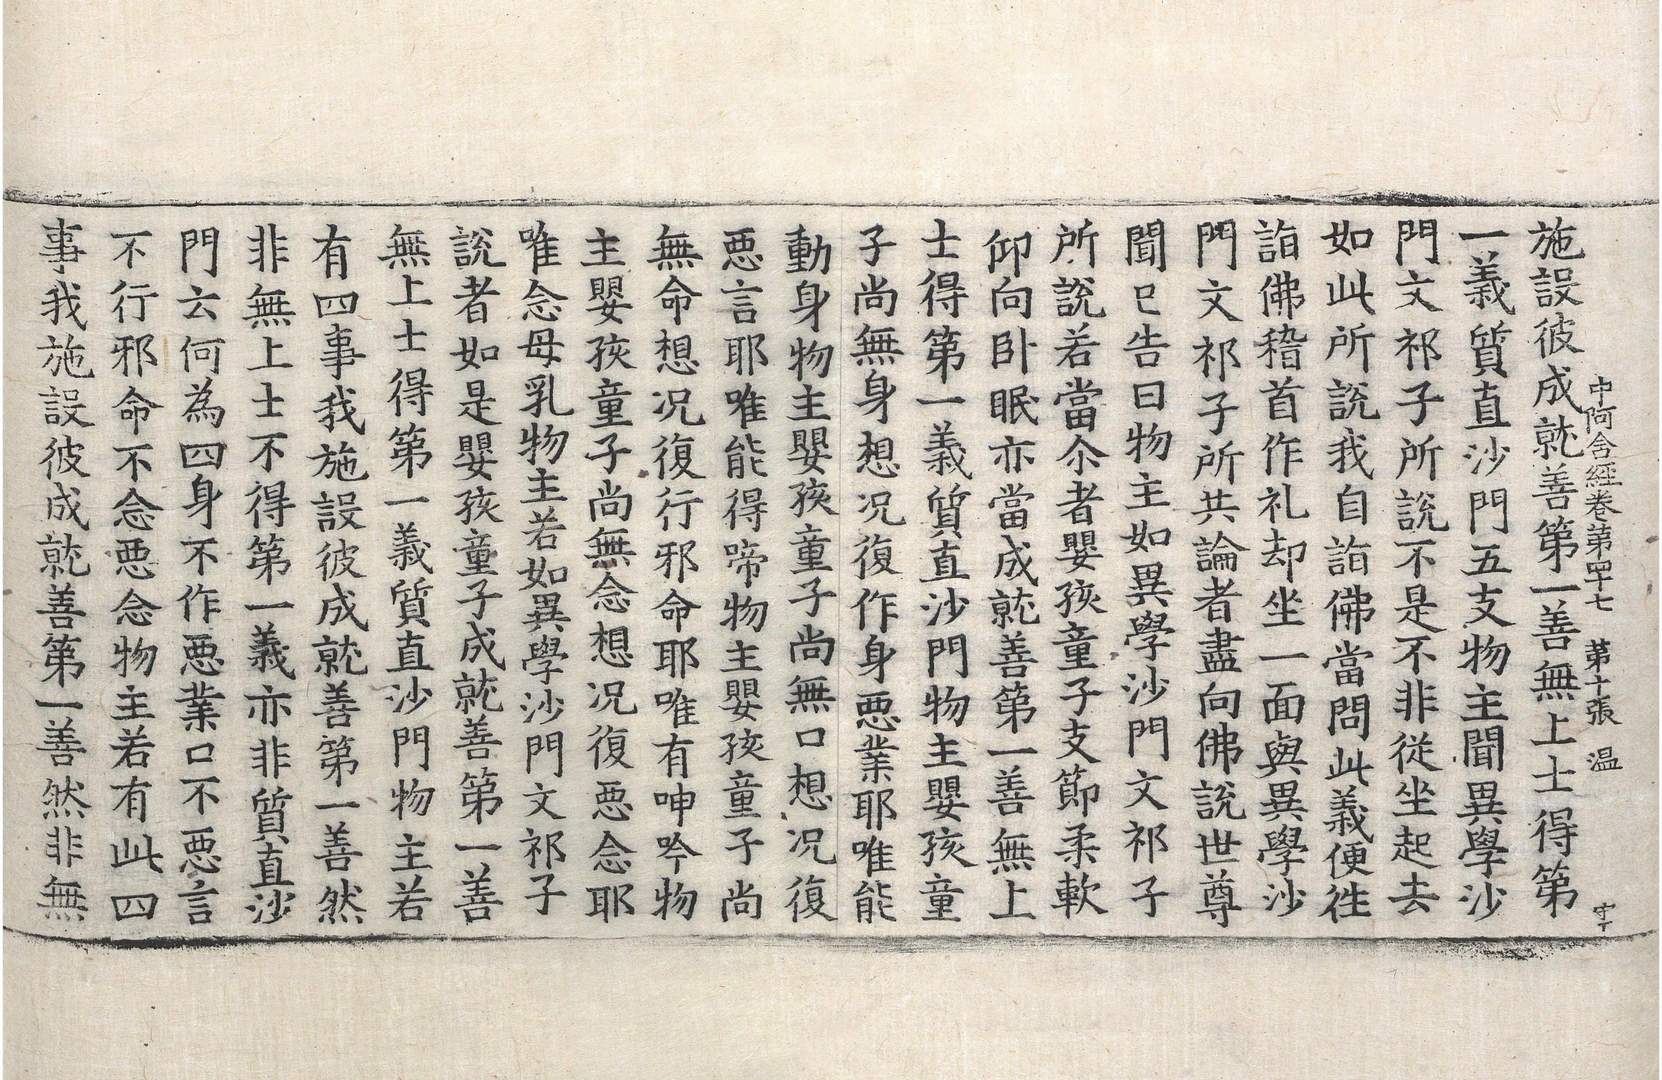 中阿含經卷第四十七 第十張 温
施設彼成就善第一善無上士得第
一義質直沙門五支物主聞異學沙
門文祁子所說不是不非從坐起去
如此所說我自詣佛當問此義便徃
詣佛稽首作礼却坐一面與異學沙
門文祁子所共論者盡向佛說世尊
聞已告曰物主如異學沙門文祁子
所說若當尒者嬰孩童子支節柔軟
仰向卧眠亦當成就善第一善無上
士得第一義質直沙門物主嬰孩童
子尚無身想况復作身惡業耶唯能
動身物主嬰孩童子尚無口想况復
惡言耶唯能得啼物主嬰孩童子尚
無命想况復行邪命耶唯有呻吟物
主嬰孩童子尚無念想况復惡念耶
唯念母乳物主若如異學沙門文祁子
說者如是嬰孩童子成就善第一善
無上士得第一義質直沙門物主若
有四事我施設彼成就善第一善然
非無上士不得第一義亦非質直沙
門云何為四身不作惡業口不惡言
不行邪命不念惡念物主若有此四
事我施設彼成就善第一善然非無